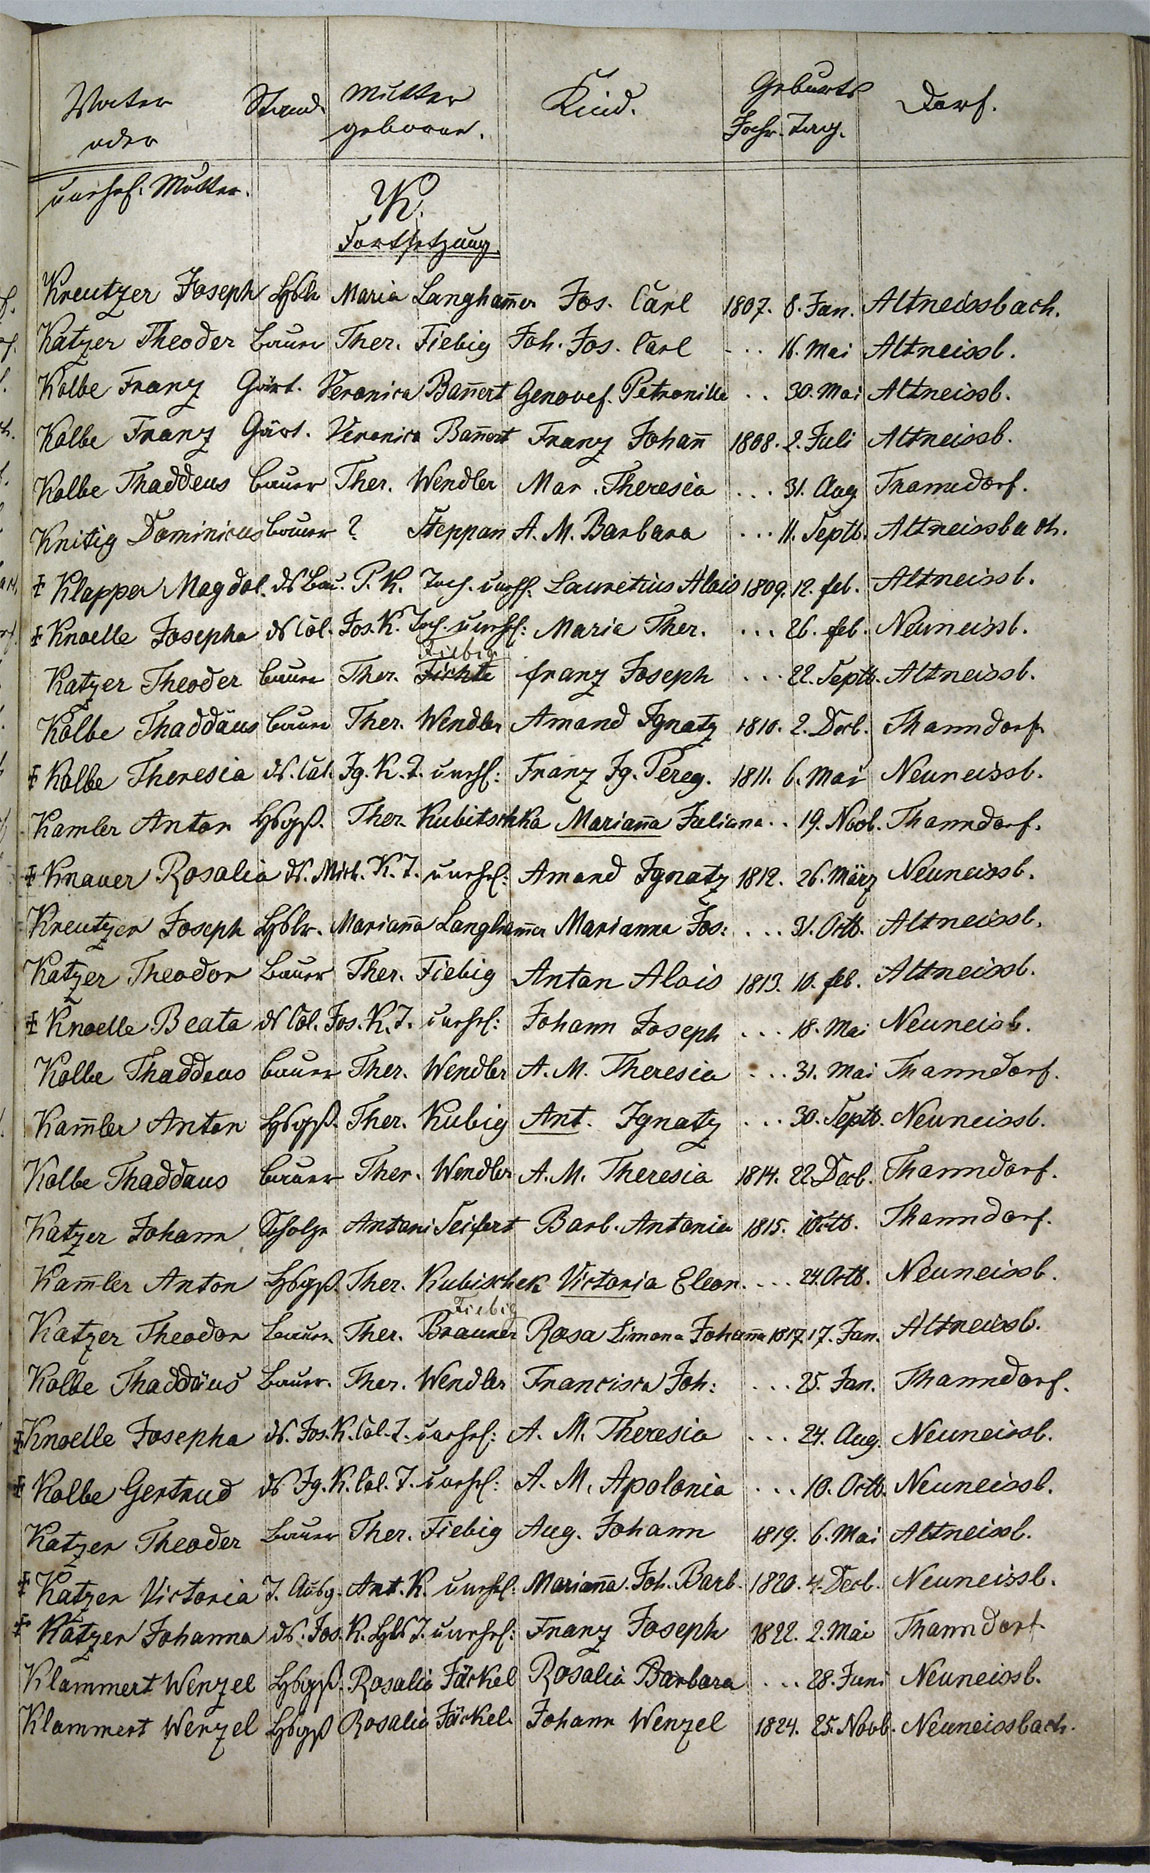 Vater oder unehel. Mutter. Stand. Mutter geborne. Kind. Geburts Jahr. Tag. Dorf.
K.
Fortsetzung.
Kreutzer Joseph Hßlr Maria Langham̅er Jos. Carl 1807. 8. Jan. Altneissbach.
Katzer Theoder Bauer Ther. Fiebig Joh. Jos. Carl ... 16. Mai Altneissb.
Kolbe Franz Gärt. Veronica Ban̅ert Genovef. Petronilla .. 30. Mai Altneissb.
Kolbe Franz Gärt. Veronica Ban̅ert Franz Johan̅ 1808. 2. Juli Altneissb.
Kolbe Thaddeus Bauer Ther. Wendler Mar. Theresia ... 31. Aug Thanndorf.
Knitig Dominicus Bauer ? Steppan A. M. Barbara ... 11. Septb. Altneissbach.
‡ Klapper Magdal. ds Bau. P. K. Toch. unehl. Lauretius Alois 1809. 12. feb. Altneissb.
‡ Knoelle Josepha ds Col. Jos. K. Toch. unehel: Maria Ther. ... 26. feb. Neuneissb.
Fiebig
Katzer Theoder Bauer Ther. Fichte franz Joseph ... 22. Septb. Altneissb.
Kolbe Thaddäus Bauer Ther. Wendler Amand Ignatz 1810. 2. Decb. Thanndorf.
‡ Kolbe Theresia ds. Col. Ig. K. T. unehl: Franz Ig. Pereg. 1811. 6. Mai Neuneissb.
Kamler Anton Hßgß. Ther. Kubitschka Marian̅a Juliana .. 19. Novb. Thanndorf.
‡ Knauer Rosalia ds. Mich. K. T. unehel: Amand Ignatz 1812. 26. März Neuneissb.
Kreutzer Joseph Hßlr. Marian̅a Langham̅er Marianna Jos: ... 31. Octb. Altneissb.
Katzer Theodor Bauer Ther. Fiebig Anton Alois 1813. 10. feb. Altneissb.
‡ Knoelle Beata ds Col. Jos. K. T. unehel: Johann Joseph ... 18. Mai Neuneissb.
Kolbe Thaddeus Bauer Ther. Wendler A. M. Theresia ... 31. Mai Thanndorf.
Kam̅ler Anton Hßgß. Ther. Kubig Ant. Ignatz ... 30. Septb. Neuneissb.
Kolbe Thaddaus Bauer Ther. Wendler A. M. Theresia 1814. 22. Decb. Thanndorf.
Katzer Johann Scholze Antoni Seifert Barb. Antonia 1815. Octb. Thanndorf.
Kam̅ler Anton Hßgß. Ther. Kubischek Victoria Eleon. ... 24. Octb. Neuneissb.
Fiebig
Katzer Theodor Bauer. Ther. Brauner Rosa Simona Johan̅a 1817. 17. Jan. Altneissb.
Kolbe Thaddäus Bauer. Ther. Wendler Francisca Joh: ... 25. Jan. Thanndorf.
‡ Knoelle Josepha ds. Jos. K. Col. T. unehel: A. M. Theresia ... 24. Aug. Neuneissb.
‡ Kolbe Gertrud ds Ig. K. Col. T. unehl: A. M. Apolonia ... 10. Octb. Neuneissb.
Katzer Theoder Bauer Ther. Fiebig Aug. Johann 1819. 6. Mai Altneissb.
‡ Katzer Victoria T. Ausg. Ant. K. unehel. Marian̅a. Joh. Barb. 1820. 4. Decb. Neuneissb.
‡ Katzer Johanna ds. Jos. K. Hßls T. unehel: Franz Joseph 1822. 2. Mai Thanndorf
Klammert Wenzel Hßgß. Rosalia Jäckel Rosalia Barbara ... 28. Juni Neuneissb.
Klammert Wenzel Hßgß Rosalia Jäckel. Johann Wenzel 1824. 25. Novb. Neuneissbach.